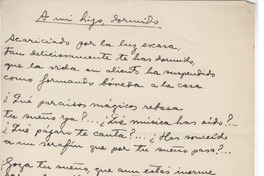 A mi hijo, dormido
Acariciado por la luz escasa,
tan deliciosamente te has dormido,
que la vida en aliento ha suspendido
como formando bóveda a la casa.
¿Qué paraísos mágicos rebasa
tu sueño ya?... ¿Qué música has oído?...
¿Qué pájaro te canta?... ¿Has sonreído
a un serafín que por tu sueño pasa?...
Goza tu sueño, que aun estás inerme